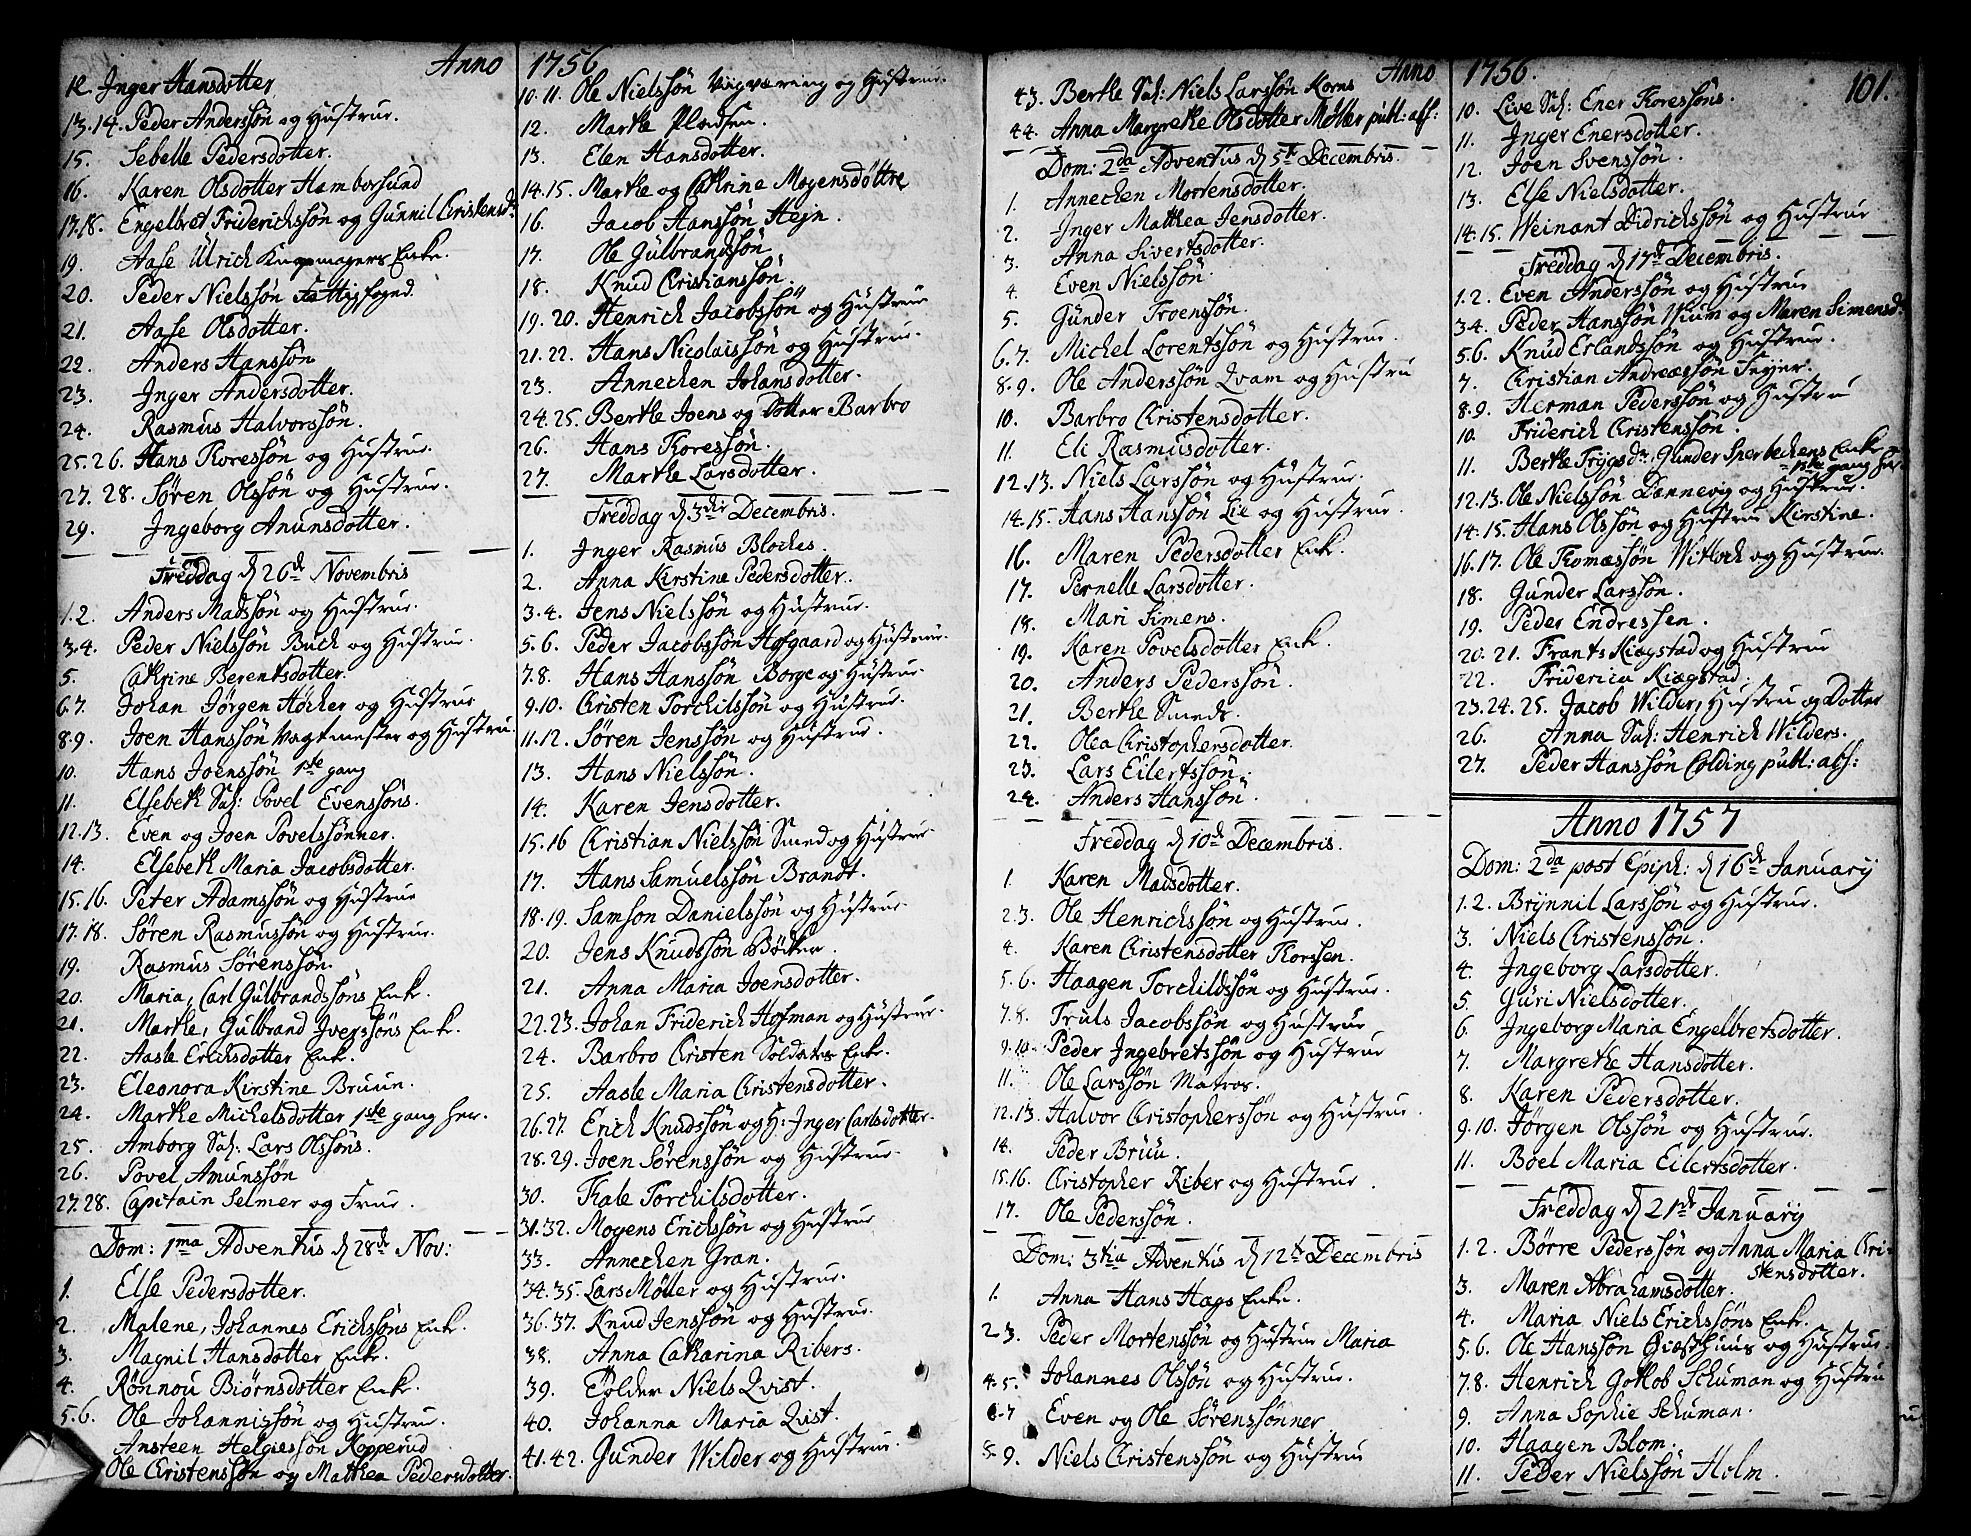 Anno
12. Inger Hansdotter
13.14. Peder Anderssøn og Hustrue.
15. Sebelle Pedersdotter.
16. Karen Olsdotter Hamborsund
17.18. Engelbret Friderichssøn og Gunnil Christensd.
19. Aase Ulrich Knapmagers Enke.
20. Peder Nielssøn Fattigfoged.
21. Aase Olsdotter.
22. Anders Hanssøn
23. Inger Andersdotter.
24. Rasmus Halvorssøn.
25.26. Hans Thoressøn og Hustrue.
27.28. Søren Olssøn og Hustrue.
29. Ingeborg Anunsdotter.
Freddag d 26de Novembris
1.2. Anders Madssøn og Hustrue.
3.4. Peder Nielssøn Buch og Hustrue.
5. Cathrine Berentsdotter.
6.7. Johan Jørgen Høcker og Hustrue
8.9. Joen Hanssøn Vagtmester og Hustrue
10. Hans Joenssøn 1ste gang
11. Elsebeth Sal: Povel Evenssøns.
12.13. Even og Joen Povelssønner.
14. Elsebeth Maria Jacobsdotter.
15.16. Peter Adamssøn og Hustrue
17.18. Søren Rasmussøn og Hustrue.
19. Rasmus Sørenssøn.
20. Maria, Carl Gulbrandssøns Enke.
21. Marthe, Gulbrand Iverssøns Enke.
22. Aasle Erichsdotter Enke.
23. Eleonora Kirstine Bruun.
24. Marthe Michelsdotter 1ste gang her.
25. Amborg Sal: Lars Olssøns.
26. Povel Amunssøn
27.28. Capitain Selmer og Frue.
Dom: 1ma Adventus d 28de Nov:
1. Else Pedersdotter.
2. Malene, Johannes Erichssøns Enke.
3. Magnil Hansdotter Enke.
4. Rønnou Biørnsdotter Enke.
5.6. Ole Johannissøn og Hustrue.
Ansteen Helgiessøn Kopperud
Ole Christenssøn og Mathea Pedersdotter.
1756
10.11. Ole Nielssøn og Hustrue.
12. Marthe Pladsen.
13. Elen Hansdotter.
14.15. Marthe og Cathrine Mogensdøttre
16. Jacob Hanssøn Hejn.
17. Ole Gulbrandssøn
18. Knud Christianssøn
19.20. Henrich Jacobssøn og Hustrue
21.22. Hans Nicolaissøn og Hustrue.
23. Annechen Johansdotter.
24.25. Berthe Joens og Dotter Barbro
26. Hans Thoressøn.
27. Marthe Larsdotter.
Freddag d 3die Decembris.
1. Inger Rasmus Bloches.
2. Anna Kirstine Pedersdotter.
3.4. Jens Nielssøn og Hustrue.
5.6. Peder Jacobssøn Hofgaard og Hustrue.
7.8. Hans Hanssøn Borge og Hustrue
9.10. Christen Torchilssøn og Hustrue.
11.12. Søren Jenssøn og Hustrue.
13. Hans Nielssøn.
14. Karen Jensdotter.
15.16 Christian Nielssøn Smed og Hustrue.
17. Hans Samuelssøn Brandt.
18.19. Samson Danielssøn og Hustrue
20. Jens Knudssøn Bødker
21. Anna Maria Joensdotter.
22.23. Johan Friderich Hofman og Hustrue.
24. Barbro Christen Soldats Enke.
25. Aasle Maria Christensdotter.
26.27. Erich Knudssøn og H: Inger Carlsdotter.
28.29. Joen Sørenssøn og Hustrue.
30. Thale Torchilsdotter.
31.32. Mogens Erichssøn og Hustrue
33. Annechen Gran.
34.35. Lars Møller og Hustrue.
36.37. Knud Jenssøn og Hustrue.
38. Anna Catharina Ribers.
39. Tolder Niels Qvist.
40. Johanna Maria Qvist.
41.42. Gunder Wilder og Hustrue.
Anno
43. Berthe Sal: Niels Larssøn Korns
44. Anna Margrethe Olsdotter Møller publ: abs:
Dom: 2da Adventus d 5te Decembris.
1. Annechen Mortensdotter.
2. Inger Mathea Jensdotter.
3. Anna Sivertsdotter.
4. Even Nielssøn
5. Gunder Troenssøn.
6.7. Michel Lorentssøn og Hustrue.
8.9. Ole Anderssøn Qvam og Hustru
10. Barbro Christensdotter.
11. Eli Rasmusdotter.
12.13. Niels Larssøn og Hustrue.
14.15. Hans Hanssøn Lie og Hustrue.
16. Maren Pedersdotter Enke.
17. Pernelle Larsdotter.
18. Mari Simens.
19. Karen Povelsdotter Enke.
20. Anders Pederssøn.
21. Berthe Smeds.
22. Olea Christophersdotter.
23. Lars Eilertssøn.
24. Anders Hanssøn.
Freddag d 10de Decembris.
1. Karen Madsdotter.
2.3. Ole Henrichssøn og Hustrue.
4. Karen Christensdotter Thorssen.
5.6. Haagen Torchildssøn og Hustrue.
7.8. Truls Jacobssøn og Hustrue
9.10. Peder Ingebretssøn og Hustrue
11. Ole Larssøn Matros.
12.13. Halvor Christopherssøn og Hustrue.
14. Peder Bruu.
15.16. Christopher Riber og Hustrue.
17. Ole Pederssøn.
Dom: 3tia Adventus d 12te Decembris
1. Anna Hans Hags Enke.
2.3. Peder Mortenssøn og Hustrue Maria
4.5. Johannes Olssøn og Hustrue.
6.7 Even og Ole Sørenssønner
8.9. Niels Christenssøn og Hustrue
1756.
101.
10. Live Sal: Ener Thoressøns.
11. Inger Enersdotter.
12. Joen Svenssøn.
13. Else Nielsdotter.
14.15. Weinant Didrichssøn og Hustrue
Freddag d 17de Decembris.
1.2. Even Anderssøn og Hustrue
3.4. Peder Hanssøn Wium og Maren Simensd.
5.6. Knud Erlandssøn og Hustrue.
7. Christian Andreassøn Tryer.
8.9. Herman Pederssøn og Hustru
10. Friderich Christenssøn.
11. Berthe Trygsdr, Gunder Sperbechens Enke
1ste gang her.
12.13. Ole Nielssøn Dannevig og Hustrue.
14.15. Hans Olssøn og Hustrue Kirstine.
16.17. Ole Thomassøn Witloch og Hustrue.
18. Gunder Larssøn.
19. Peder Endressen.
20.21. Frants Kiægstad og Hustrue
22. Friderica Kiægstad.
23.24.25. Jacob Wilder, Hustru og Dotter
26. Anna Sal: Henrich Wilders.
27. Peder Hanssøn Colding publ: abs:
Anno 1757
Dom: 2da post Epiph: d 16de January
1.2. Brynnil Larssøn og Hustrue.
3. Niels Christenssøn.
4. Ingeborg Larsdotter.
5. Guri Nielsdotter.
6. Ingeborg Maria Engelbretsdotter.
7. Margrethe Hansdotter.
8. Karen Pedersdotter.
9.10. Jørgen Olssøn og Hustrue.
11. Boel Maria Eilertsdotter.
Freddag d 21de January
1.2. Børre Pederssøn og Anna Maria Chri-
stensdotter.
3. Maren Abrahamsdotter.
4. Maria Niels Erichssøns Enke.
5.6. Ole Hanssøn Giæsthuus og Hustrue
7.8. Henrich Gotlob Schuman og Hustru
9. Anna Sophie Schuman.
10. Haagen Blom.
11. Peder Nielssøn Holm.